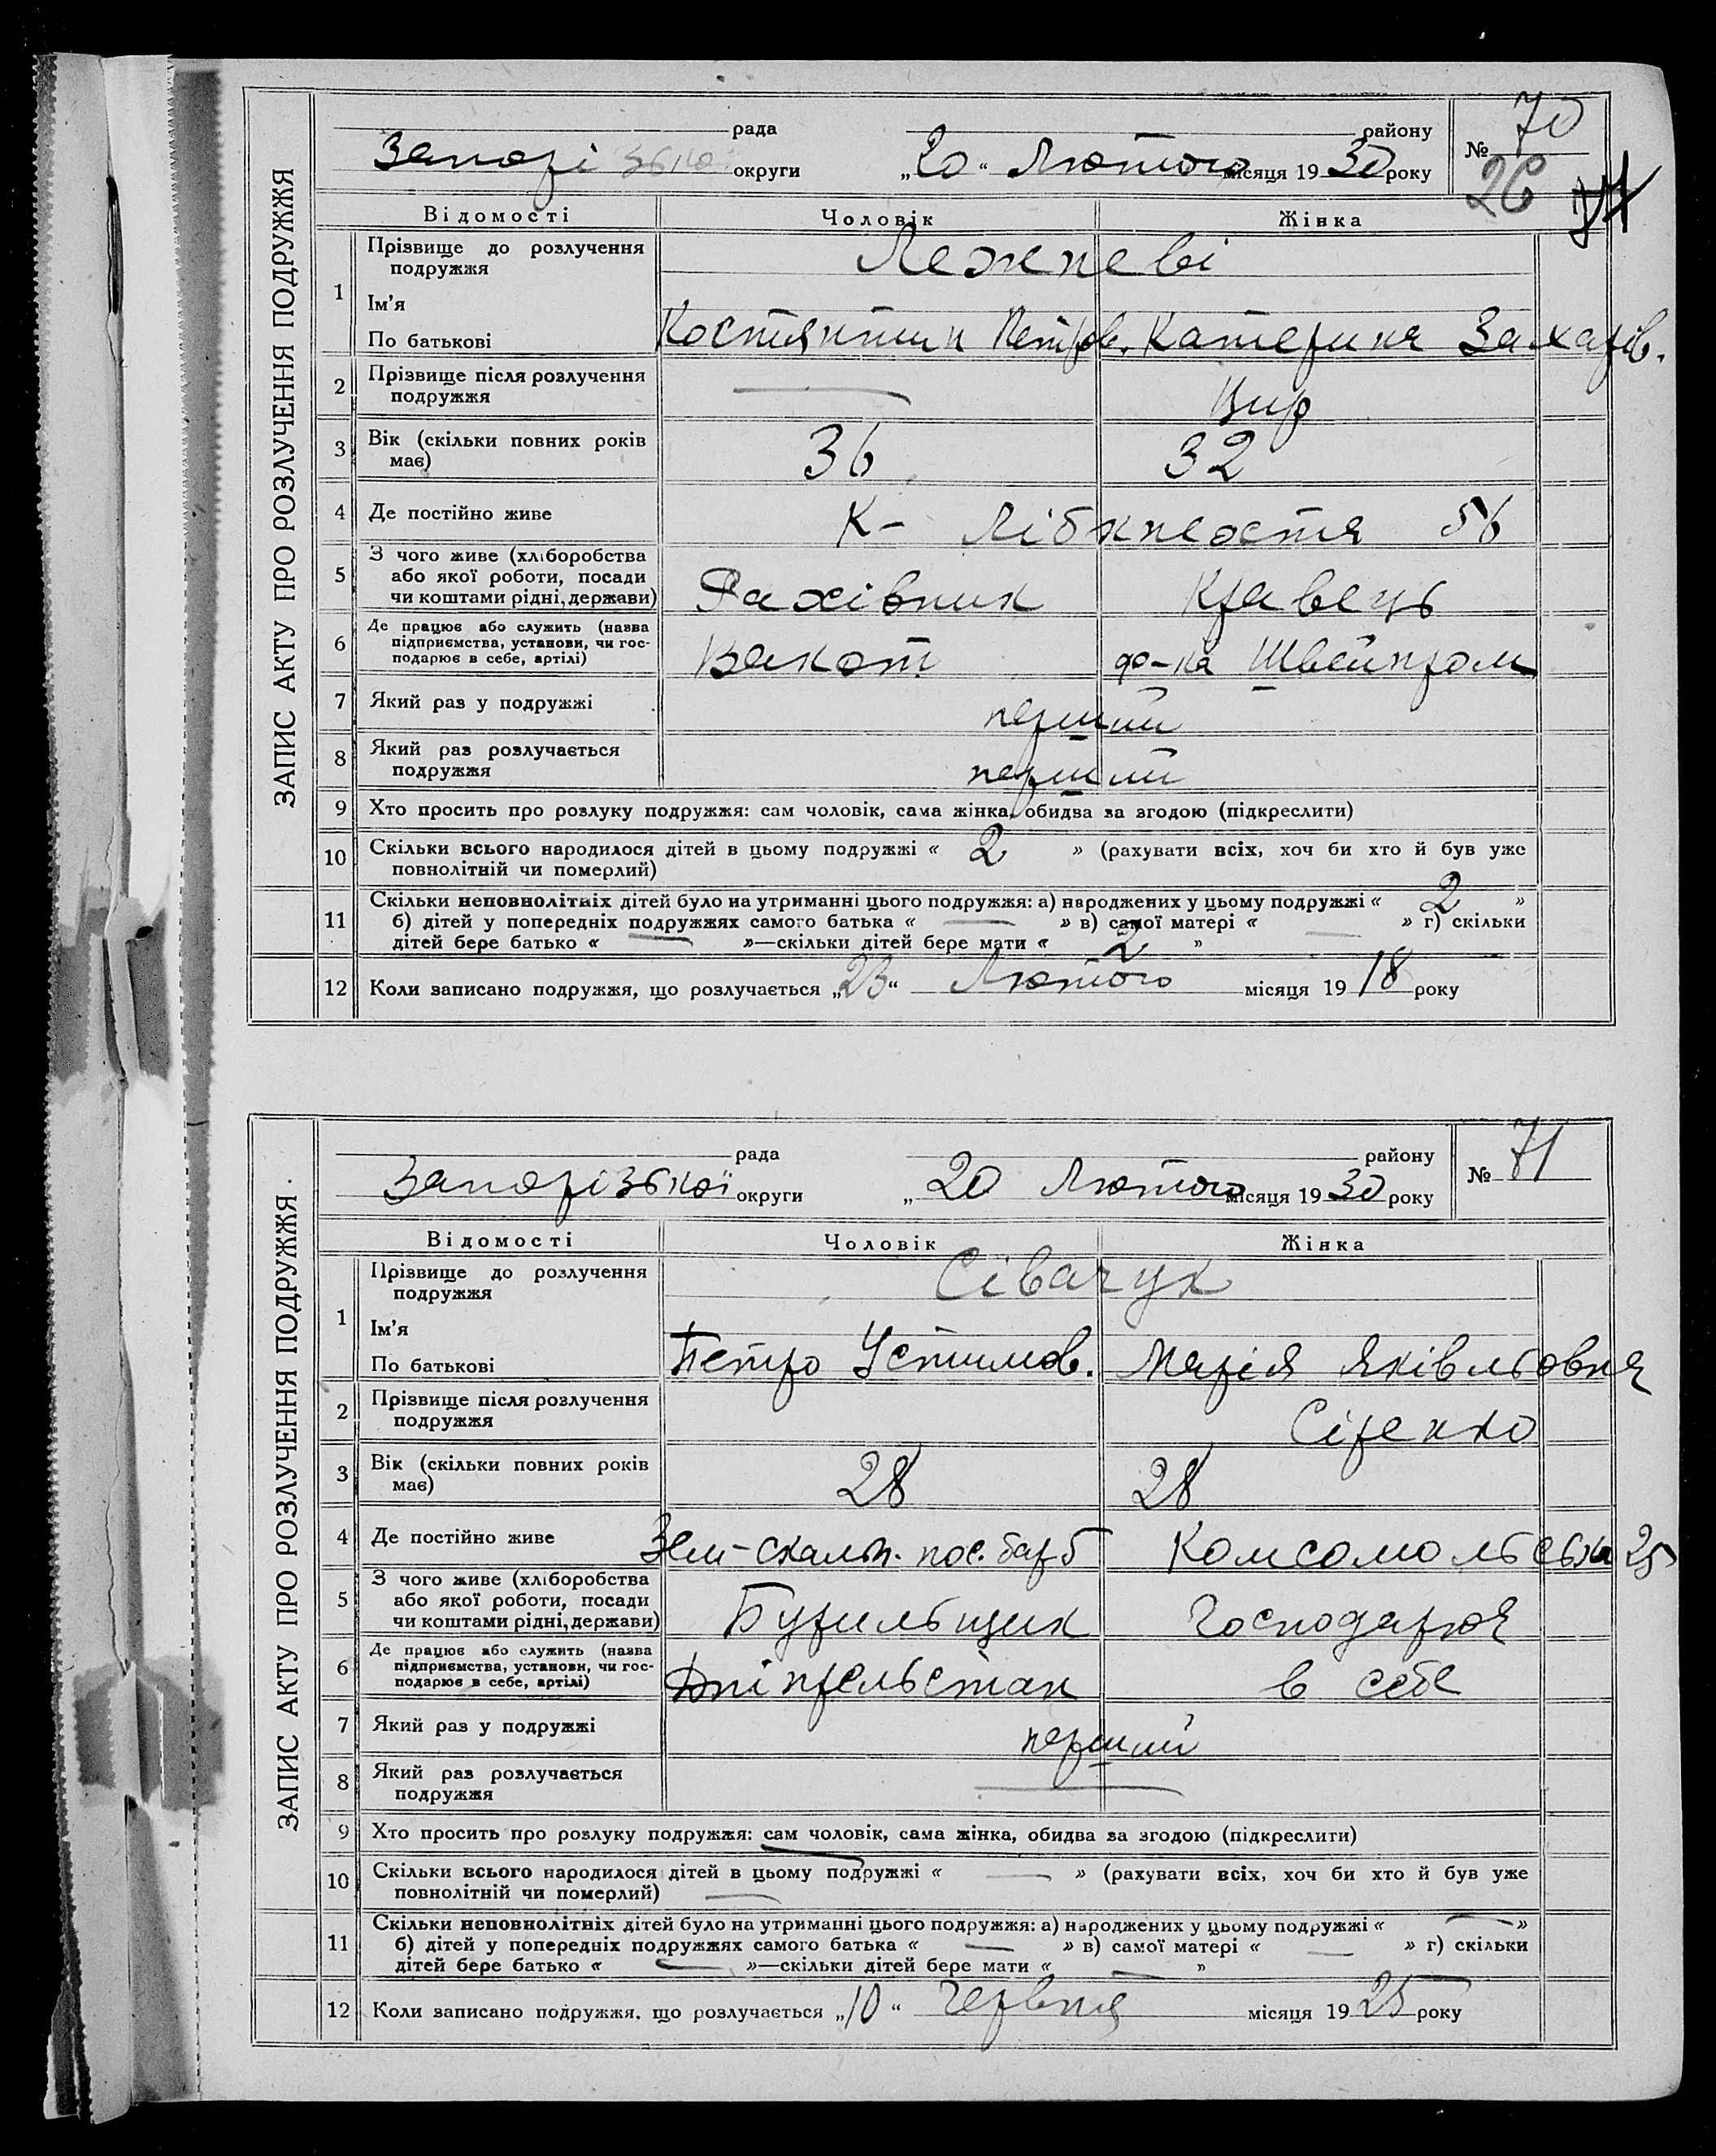 ЗАПИС АКТУ ПРО РОЗЛУЧЕННЯ ПОДРУЖЖЯ
рада району
Запорізької округи „20“ Лютого місяця 1930 року № 70
26 71
Відомості Чоловік Жінка
1 Прізвище до розлучення подружжя Лежневі
Ім'я
По батькові Костянтин Петров. Катерина Захарів.
2 Прізвище після розлучення подружжя — Цир
3 Вік (скільки повних років має) 36 32
4 Де постійно живе К- Лібкнехтя 56
5 З чого живе (хліборобства або якої роботи, посади чи коштами рідні, держави) Рахівник Кравець
6 Де працює або служить (назва підприємства, установи, чи господарює в себе, артілі) Вакот ф-ка Швейпром
7 Який раз у подружжі перший
8 Який раз розлучається подружжя перший
9 Хто просить про розлуку подружжя: сам чоловік, сама жінка, обидва за згодою (підкреслити)
10 Скільки всього народилося дітей в цьому подружжі « 2 » (рахувати всіх, хоч би хто й був уже
повнолітній чи померлий)
11 Скільки неповнолітніх дітей було на утриманні цього подружжя: а) народжених у цьому подружжі « 2 »
б) дітей у попередніх подружжях самого батька « — » в) самої матері « — » г) скільки
дітей бере батько « — »—скільки дітей бере мати « 2 »
12 Коли записано подружжя, що розлучається „23“ Лютого місяця 1918 року
ЗАПИС АКТУ ПРО РОЗЛУЧЕННЯ ПОДРУЖЖЯ
рада району
Запорізької округи „20 Лютого місяця 1930 року № 71
Відомості Чоловік Жінка
1 Прізвище до розлучення подружжя Сівачук
Ім'я
По батькові Петро Устимов. Марія Яківльовня
2 Прізвище після розлучення подружжя Сіренко
3 Вік (скільки повних років має) 28 28
4 Де постійно живе Зем-скальн. пос. барб Комсомольська 25
5 З чого живе (хліборобства або якої роботи, посади чи коштами рідні, держави) Бурильщик Господарює
6 Де працює або служить (назва підприємства, установи, чи господарює в себе, артілі) Дніпрельстан в себе
7 Який раз у подружжі перший
8 Який раз розлучається подружжя —
9 Хто просить про розлуку подружжя: сам чоловік, сама жінка, обидва за згодою (підкреслити)
10 Скільки всього народилося дітей в цьому подружжі « — » (рахувати всіх, хоч би хто й був уже
повнолітній чи померлий) —
11 Скільки неповнолітніх дітей було на утриманні цього подружжя: а) народжених у цьому подружжі « — »
б) дітей у попередніх подружжях самого батька « — » в) самої матері « — » г) скільки
дітей бере батько « — »—скільки дітей бере мати « — »
12 Коли записано подружжя, що розлучається „10“ Червня місяця 1925 року